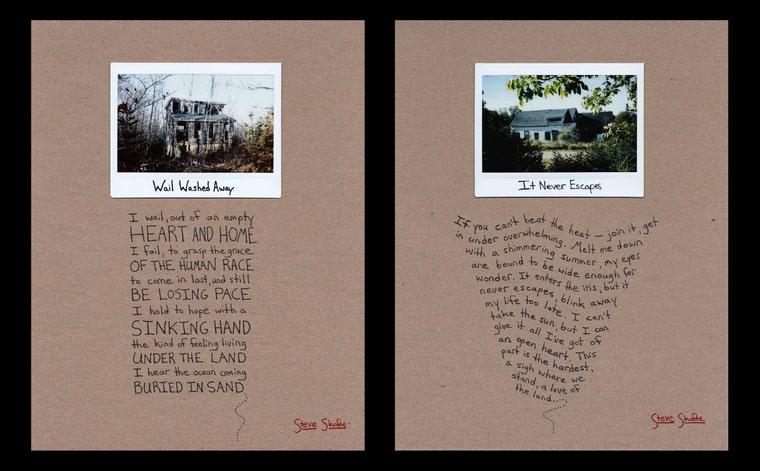 Wail Washed Away
I wail, out of an empty
HEART AND HOME
I fail, to grasp the grace
OF THE HUMAN RACE
to come in last, and still
BE LOSING PACE
I hold to hope with a
SINKING HAND
the kind of feeling living
UNDER THE LAND
I hear the ocean coming
BURIED IN SAND
Steve Skafte
It Never Escapes
If you can't beat the heat — join it, get
in under overwhelming. Melt me down
with a shimmering summer, my eyes
are bound to be wide enough for
wonder. It enters the iris, but it
never escapes, blink away
my life too late. I can't
take the sun, but I can
give it all I've got of
an open heart. This
part is the hardest,
a sigh where we
stand, a love of
the land.....
Steve Skafte